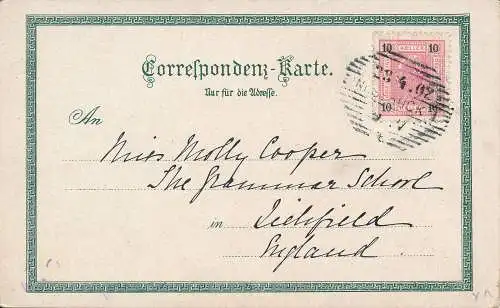 10 10
Correspondenz-Karte.
Nur für die Adresse.
23.4.02
10 10
An
Miss Molly Cooper
The Grammar School
in Lichfield
England